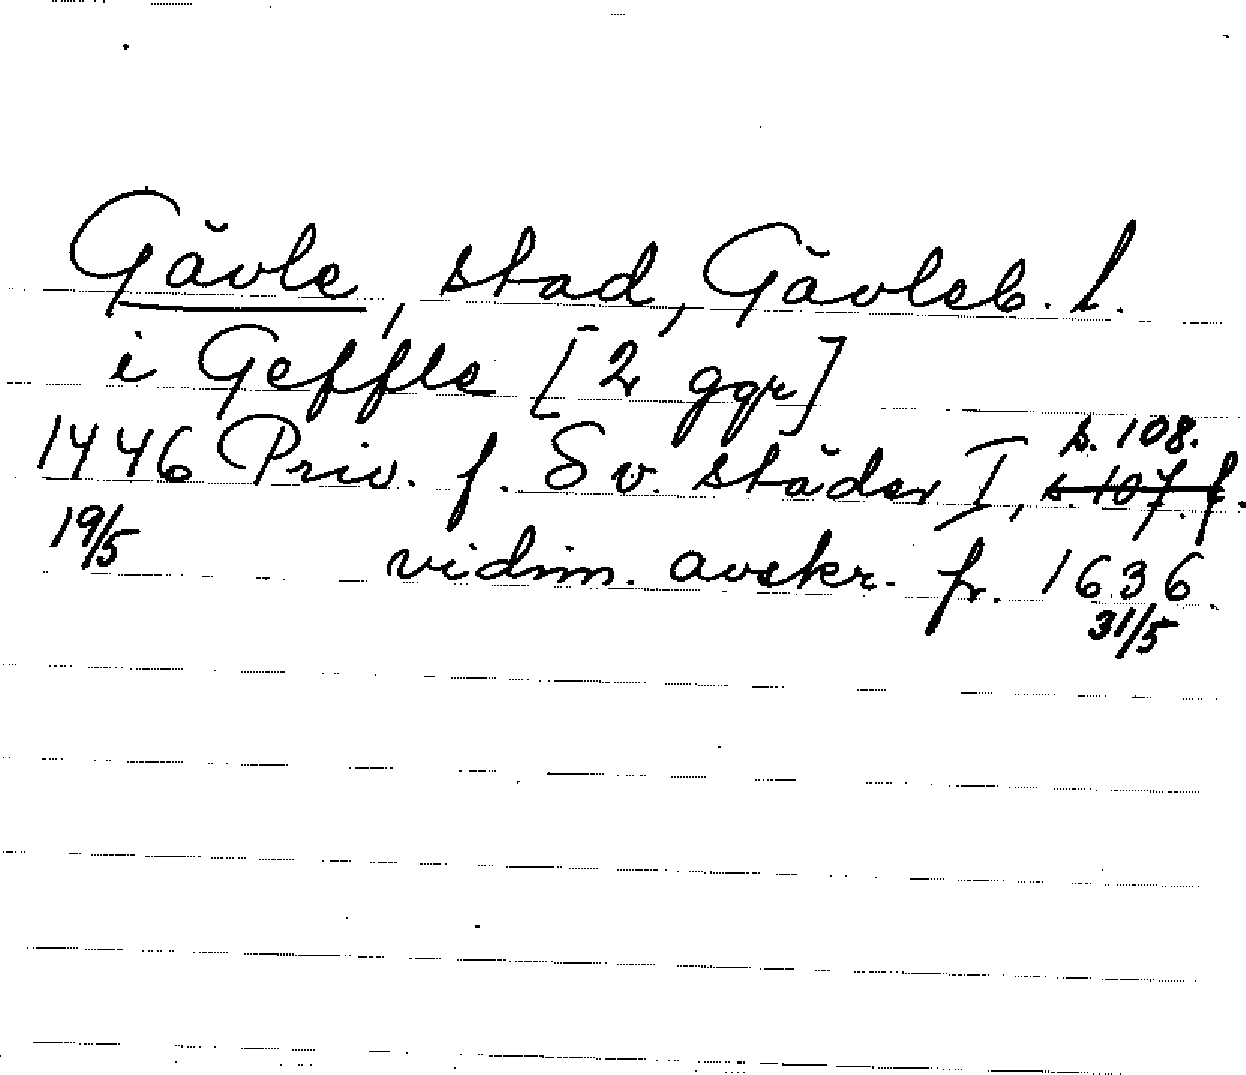 Gävle, stad, Gävleb. l.
i Geffle [2 ggr]
s. 108.
1446 Priv. f. Sv. städer I, s. 107. f.
19/5 vidim. avskr. fr. 1636.
31/5